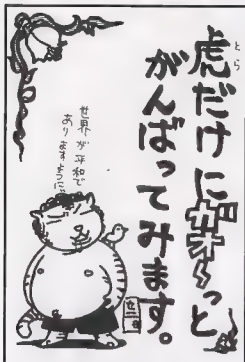 虎だけにガオ〜っと
とら
がんばってみます。
世界が平和で
ありますように。